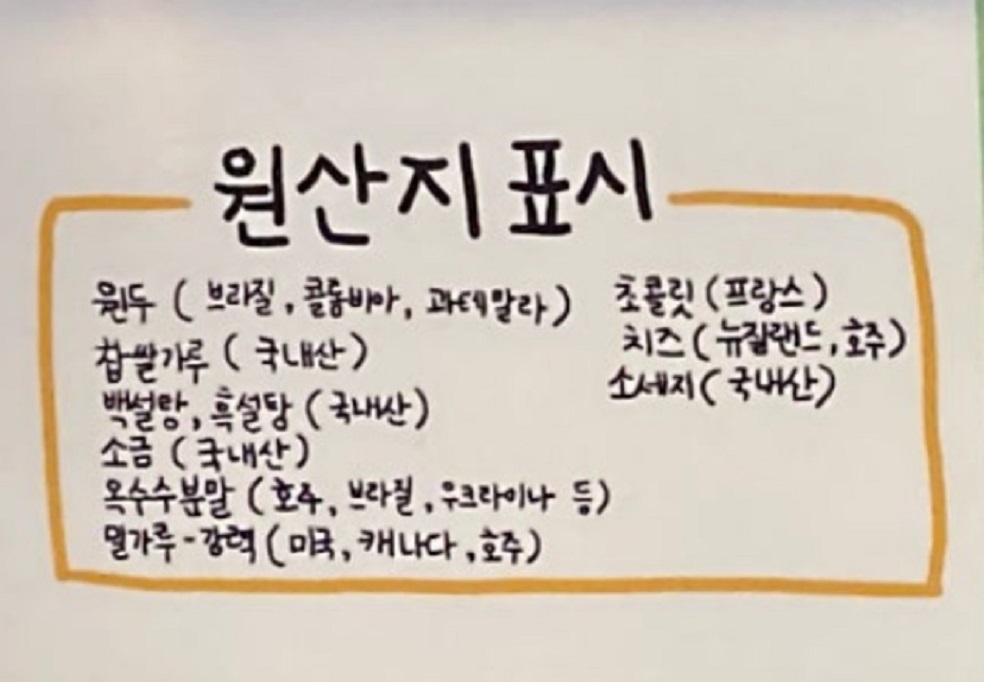 원산지 표시
원두 (브라질, 콜롬비아, 과테말라)
찹쌀가루 (국내산)
백설탕, 흑설탕 (국내산)
소금 (국내산)
옥수수분말 (호주, 브라질, 우크라이나 등)
밀가루-강력 (미국, 캐나다, 호주)
초콜릿 (프랑스)
치즈 (뉴질랜드, 호주)
소세지 (국내산)